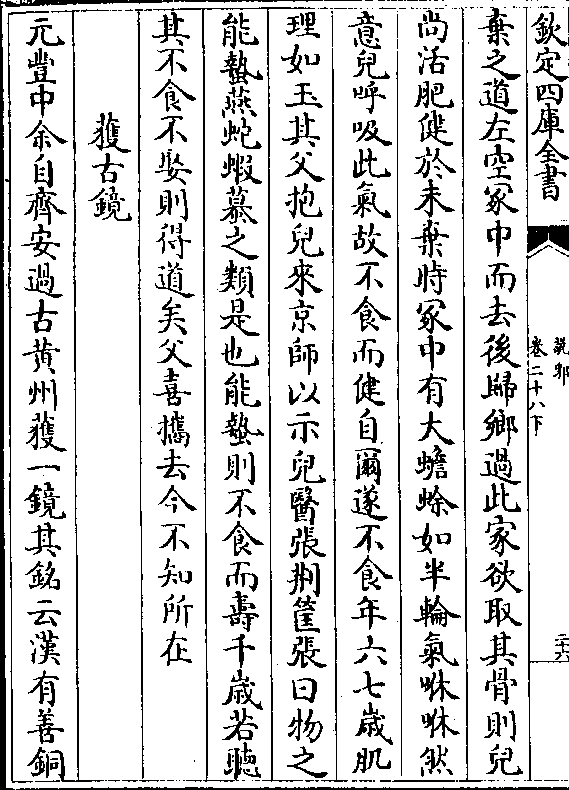 欽定四庫全書
說郛
卷二十八下
二十六
棄之道左空冢中而去後歸鄉過此冢欲取其骨則兒
尚活肥健於未棄時冢中有大蟾蜍如半輪氣咻咻然
意兒呼吸此氣故不食而健自爾遂不食年六七歲肌
理如玉其父抱兒來京師以示兒醫張荆筐張曰物之
能蟄燕蛇蝦蟇之類是也能蟄則不食而壽千歲若聽
其不食不娶則得道矣父喜攜去今不知所在
獲古鏡
元豐中余自齊安過古黄州獲一鏡其銘云漢有善銅